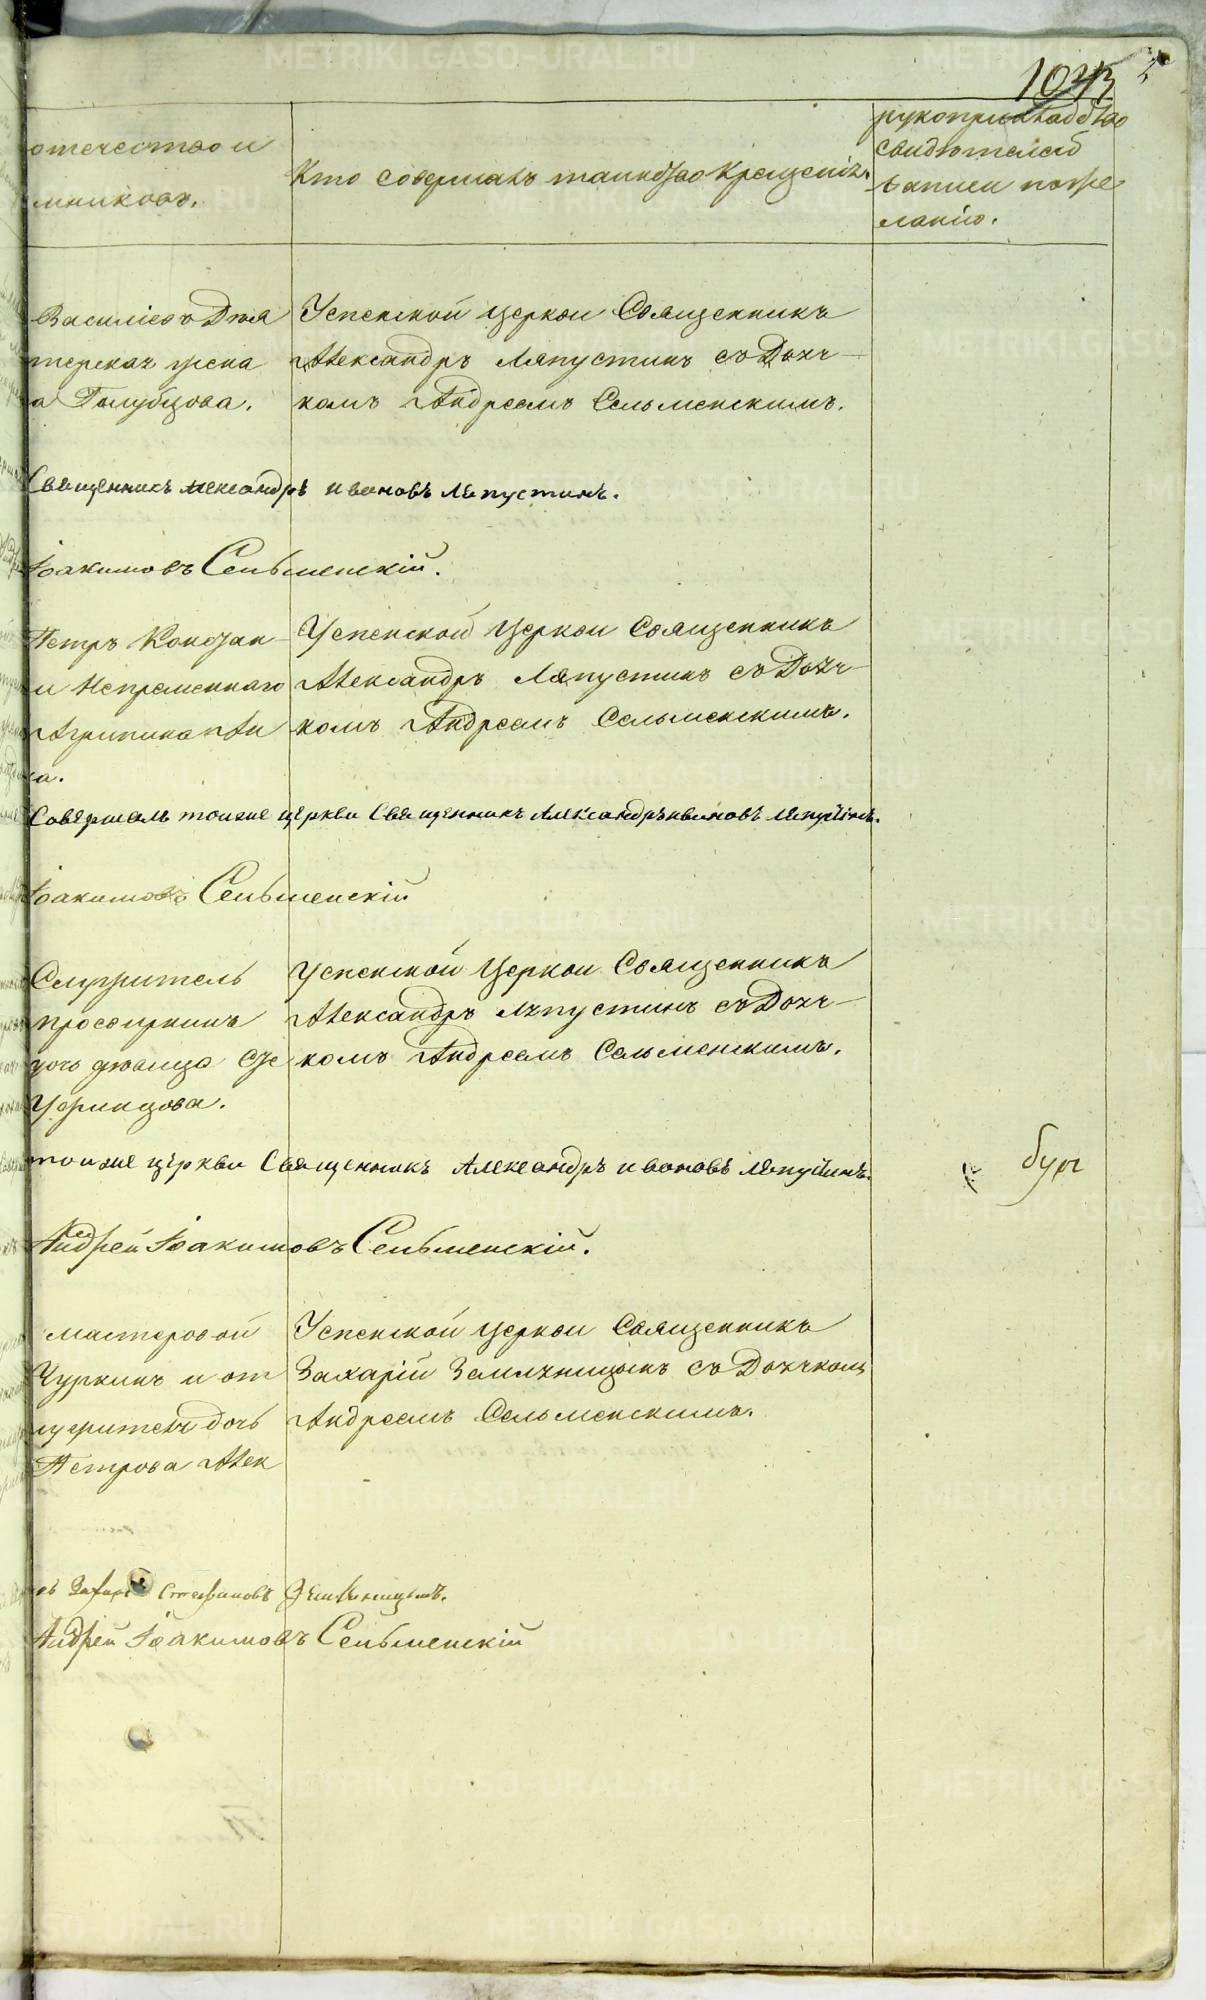 1043
отечество и
мниковъ.
Кто совершалъ таинство крещенія.
рукоприкладство
свидѣтелей
записи поже
ланію.
Васильевъ Дья
жена
а Голубцова.
Успенской церкви Священникъ
Александръ Ляпустинъ съ Дьяч
комъ Андреемъ Сельменскимъ.
Священникъ Александръ Ивановъ Ляпустинъ.
Іоакимовъ Сельменскій.
Петръ Констан
и Непременнаго
Агрипина Ан
а.
Успенской церкви Священникъ
Александръ Ляпустинъ съ Дьяч
комъ Андреемъ Сельменскимъ.
Совершалъ тоиже церкви Священникъ Александръ Ивановъ Ляпустинъ.
Іоакимовъ Сельменскій
Служитель
дочь девица
Успенской церкви Священникъ
Александръ Ляпустинъ съ Дьяч
комъ Андреемъ Сельменскимъ.
тоиже церкви Священникъ Александръ Ивановъ Ляпустинъ.
Андрей Іоакимовъ Сельменскій.
мастеровой
Чуркинъ и от
служителя дочь
Петрова Алек
Успенской церкви Священникъ
Захарій Земляницынъ съ Дьячкомъ
Андреемъ Сельменскимъ.
ъ Захарій Стефановъ Земляницынъ.
Андрей Іоакимовъ Сельменскій